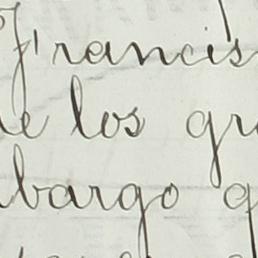 Francis
de los gr
bargo q